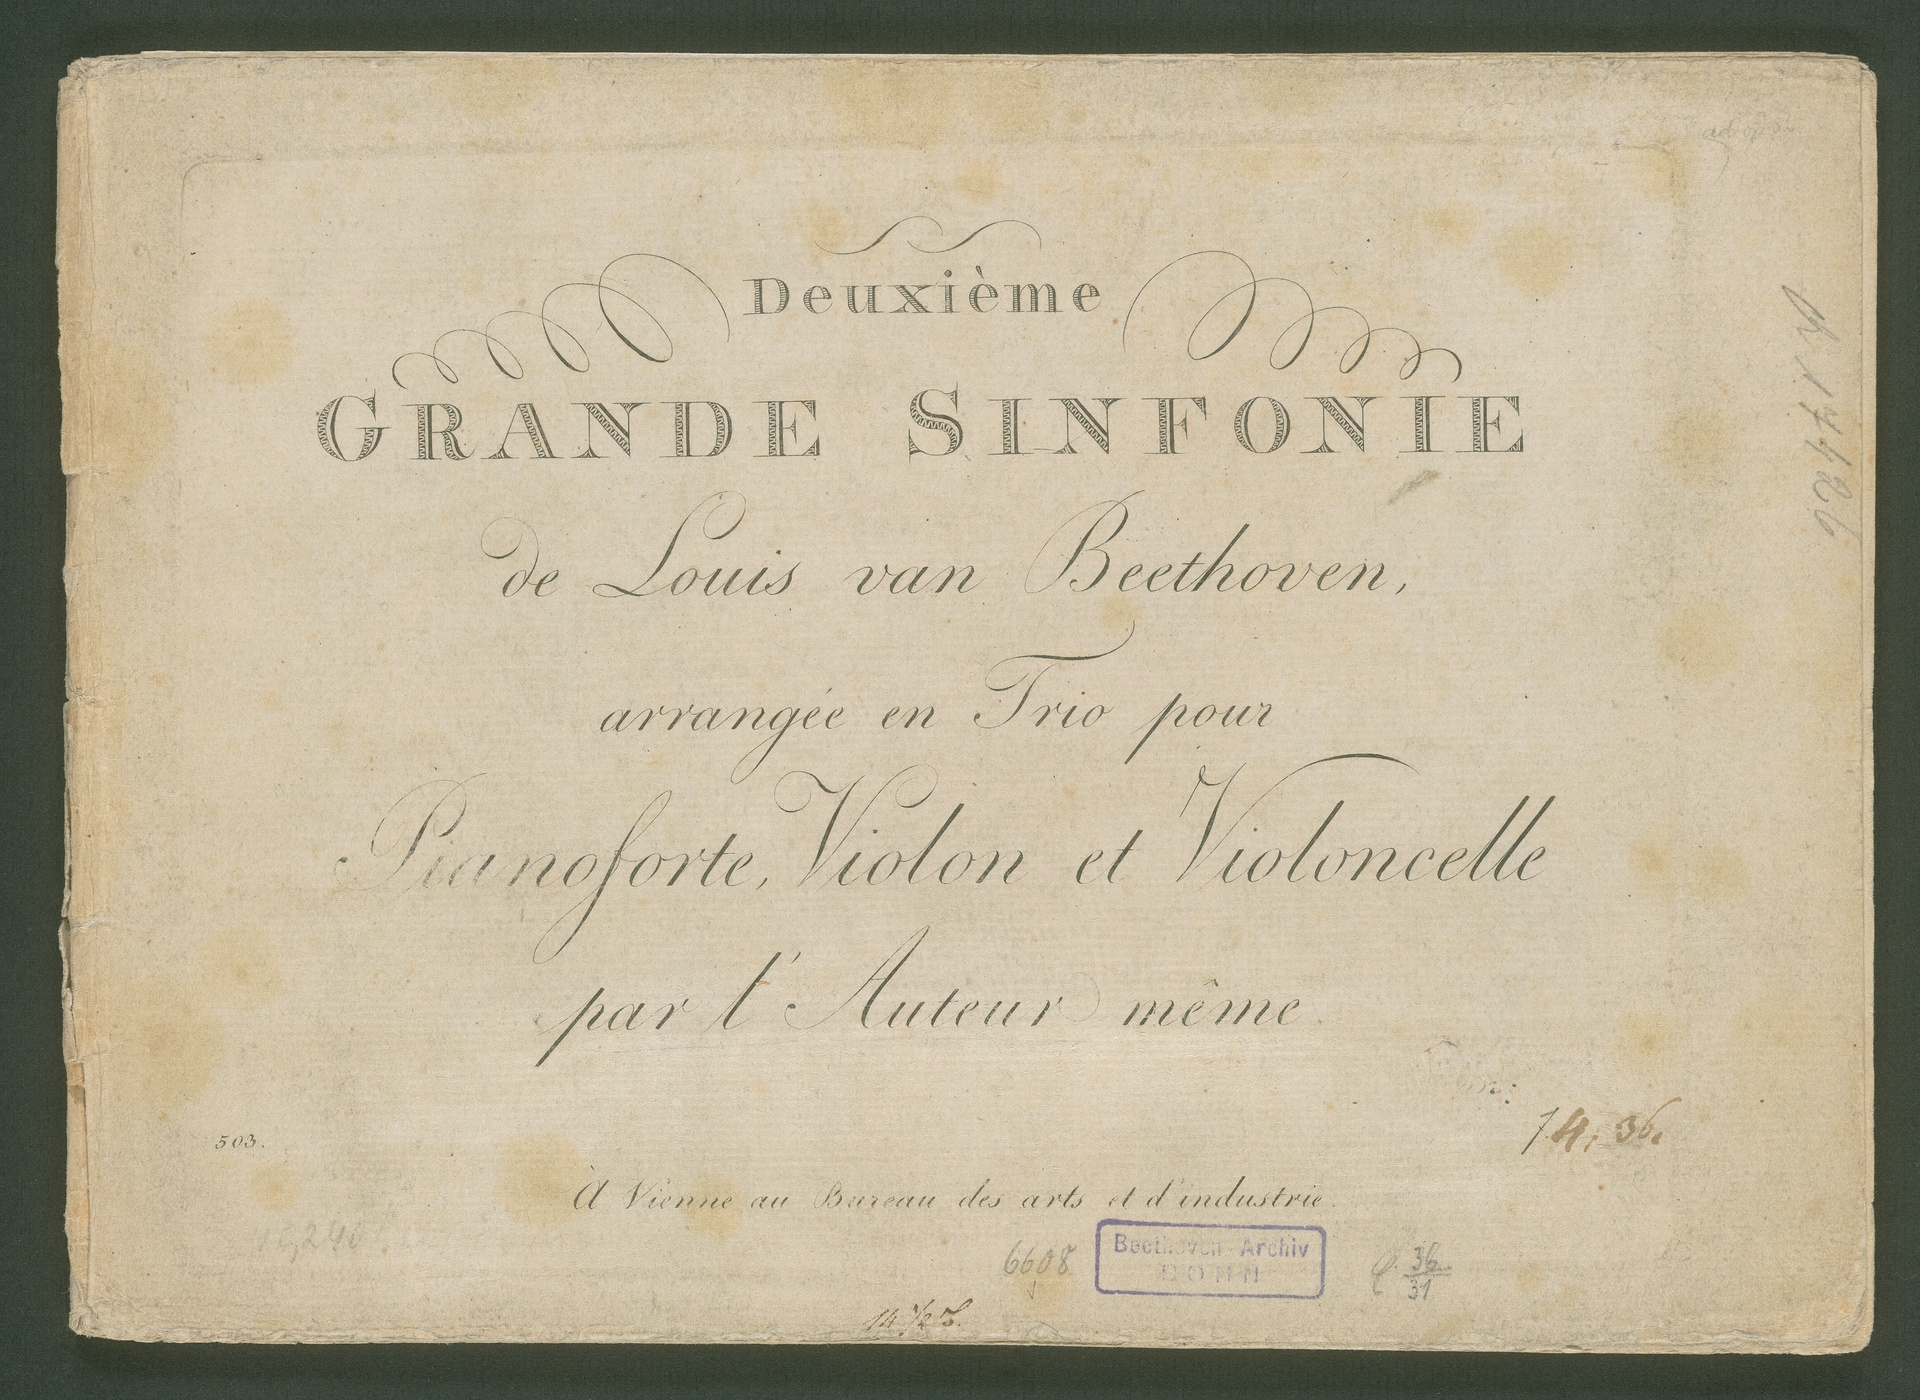 Deuxième
GRANDE SINFONIE
de Louis van Beethoven,
arrangée en Trio pour
Pianoforte, Violon et Violoncelle
par l'Auteur même
74, 36.
503.
À Vienne au Bureau des arts et d'industrie.
6608
Beethoven-Archiv
BONN
C. 36
31